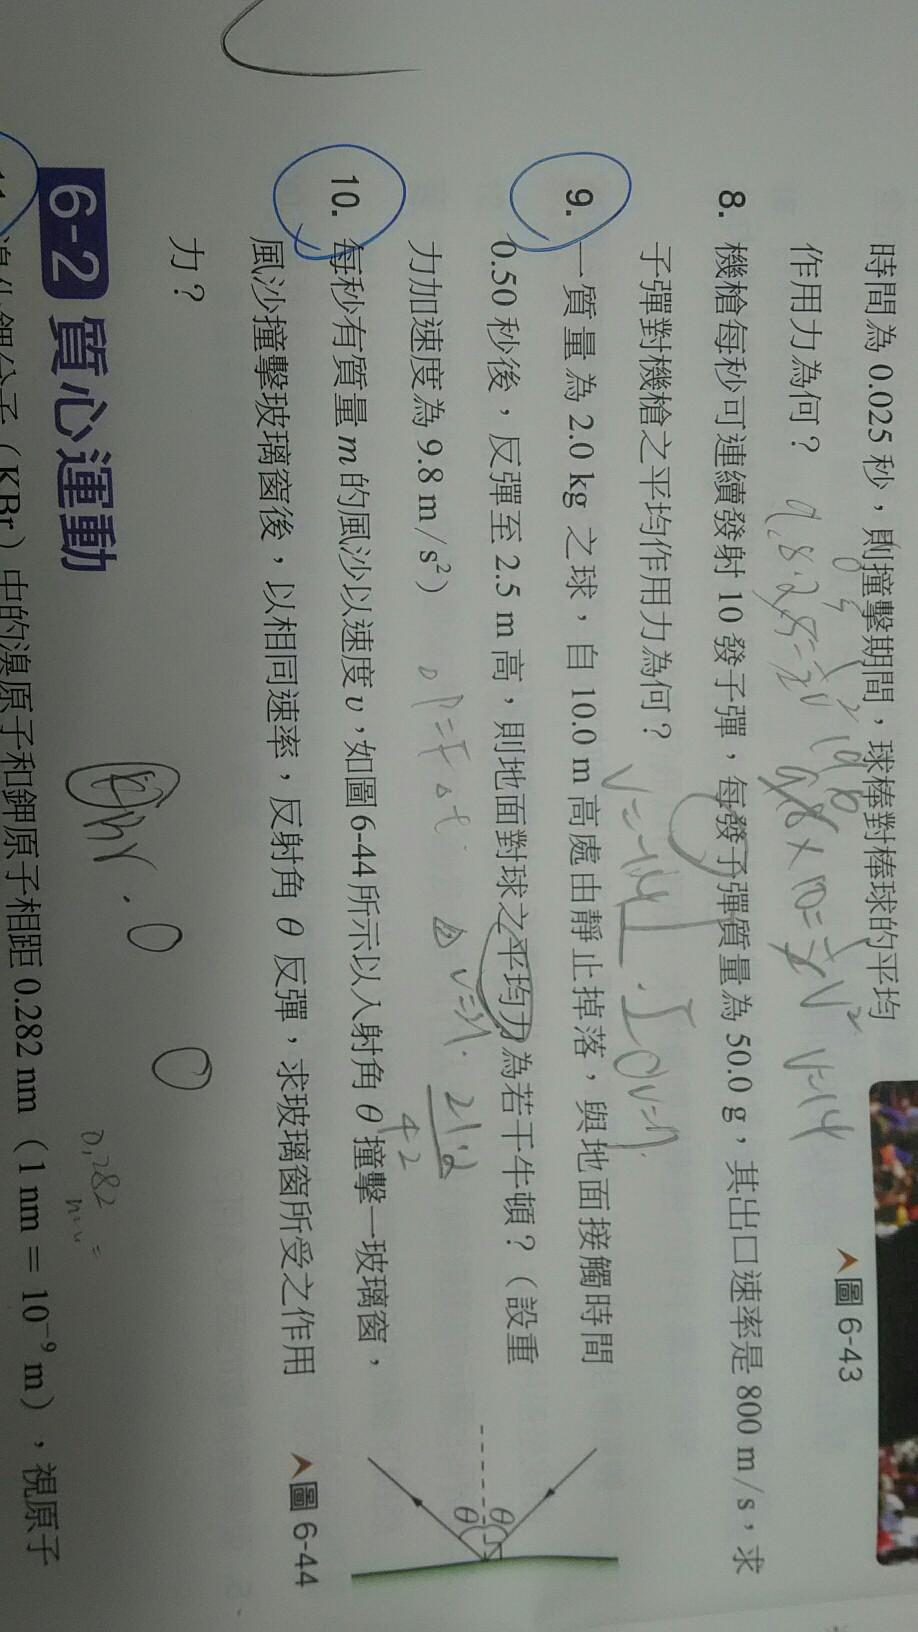 時間為 0.025 秒，則撞擊期間，球棒對棒球的平均
作用力為何？
圖 6-43
8. 機槍每秒可連續發射 10 發子彈，每發子彈質量為 50.0 g，其出口速率是 800 m/s，求
子彈對機槍之平均作用力為何？
9. 一質量為 2.0 kg 之球，自 10.0 m 高處由靜止掉落，與地面接觸時間
0.50 秒後，反彈至 2.5 m 高，則地面對球之平均力為若干牛頓？（設重
力加速度為 9.8 m/s²）
ΔP=F Δt
10. 每秒有質量 m 的風沙以速度 v，如圖 6-44 所示以入射角 θ 撞擊一玻璃窗，
風沙撞擊玻璃窗後，以相同速率，反射角 θ 反彈，求玻璃窗所受之作用
力？
θ
θ
圖 6-44
6-2 質心運動
11. 溴化鉀分子（KBr）中的溴原子和鉀原子相距 0.282 nm（1 nm = 10⁻⁹ m），視原子